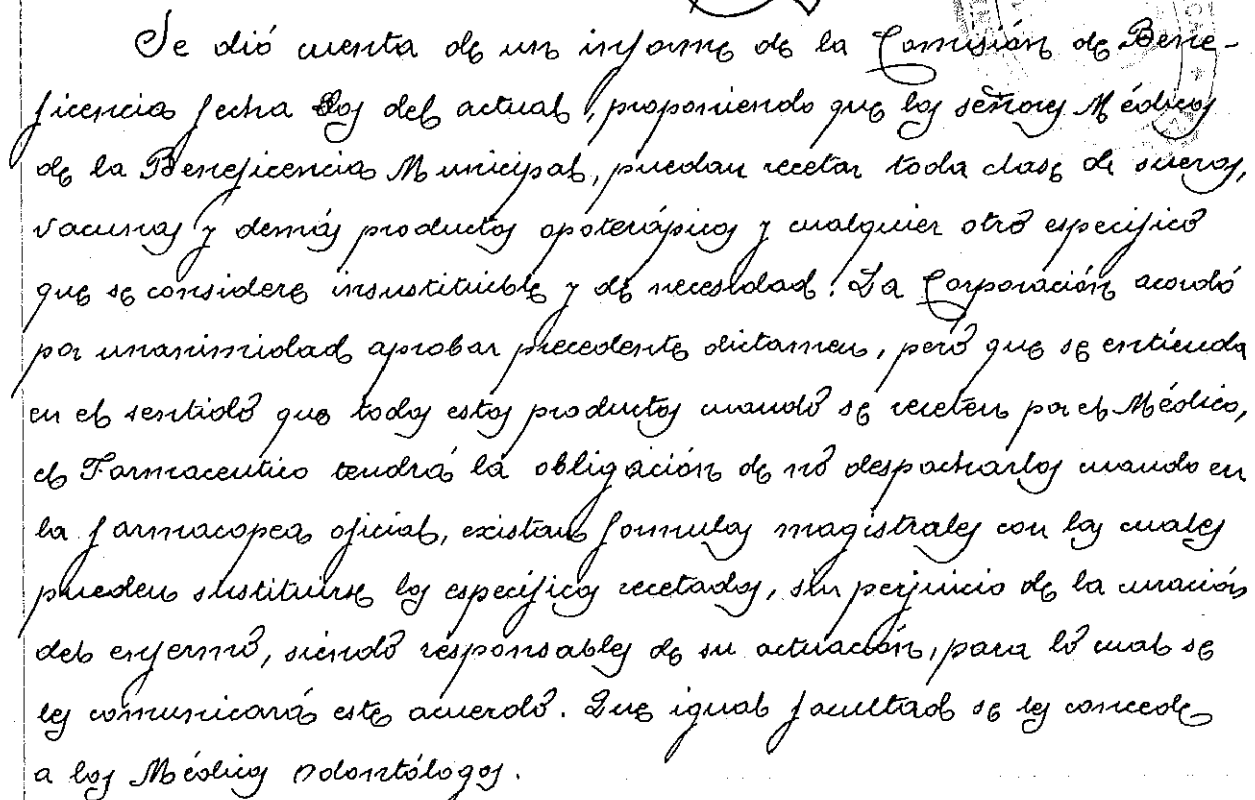 Se dió cuenta de un informe de la Comisión de Bene-
ficencia fecha dos del actual, proponiendo que los señores Médicos
de la Beneficencia Municipal, puedan recetar toda clase de sueros,
vacunas y demás productos opoterápicos y cualquier otro especifico
que se considere insustituible y de necesidad. La Corporación acordó
por unanimidad aprobar precedente dictamen, pero que se entienda
en el sentido que todos estos productos cuando se receten por el Médico,
el Farmaceutico tendrá la obligación de no despacharlos cuando en
la farmacopea oficial, existan formulas magistrales con las cuales
pueden sustituirse los específicos recetados, sin perjuicio de la curación
del enfermo, siendo responsables de su actuación, para lo cual se
les comunicará este acuerdo. Que igual facultad se les concede
a los Médicos Odontólogos.